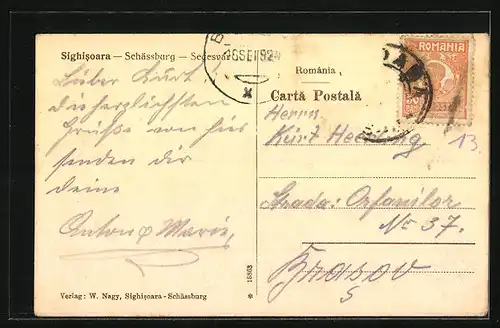 Sighișoara — Schässburg — Segesvár
România
Cartă Postală
ROMANIA
Lieber Kurt!
die herzlichsten
Grüße von hier
senden dir
deine
Anton &
Herrn
Kurt
Strada: Orfanilor
No 37.
Brașov
13
18863
Verlag: W. Nagy, Sighișoara-Schässburg